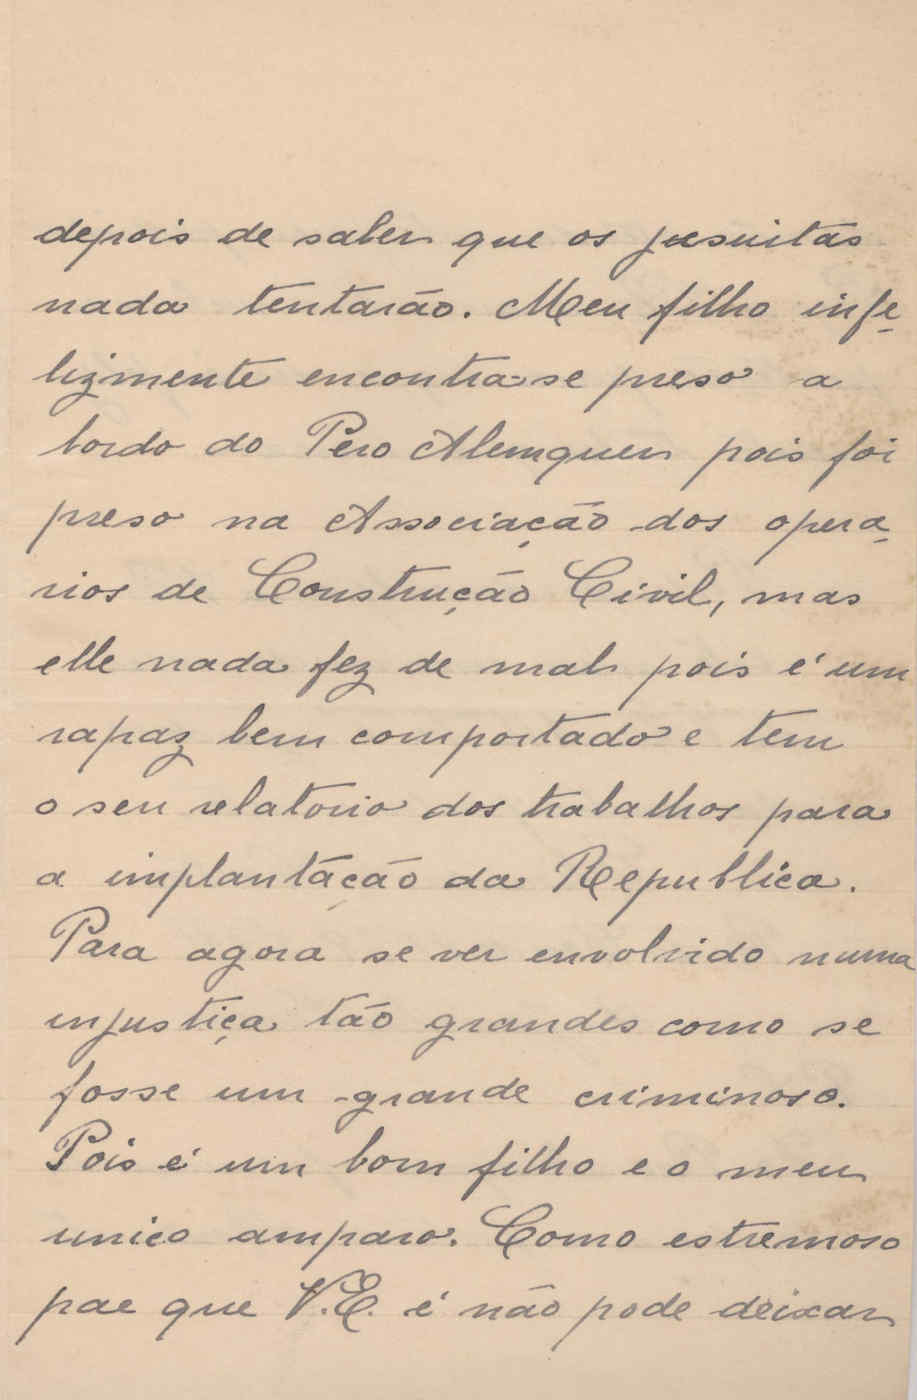 depois de saber que os jesuitas
nada tentarão. Meu filho infe-
lizmente encontra-se preso a
bordo do Pero Alemquer pois foi
preso na Associação dos opera-
rios de Construção Civil, mas
elle nada fez de mal pois é um
rapaz bem comportado e tem
o seu relatorio dos trabalhos para
a implantáção da Republica.
Para agora se ver envolvido numa
injustiça tão grandes como se
fosse um grande criminoso.
Pois é um bom filho e o meu
unico amparo. Como estremoso
pae que V.E. é não pode deixar